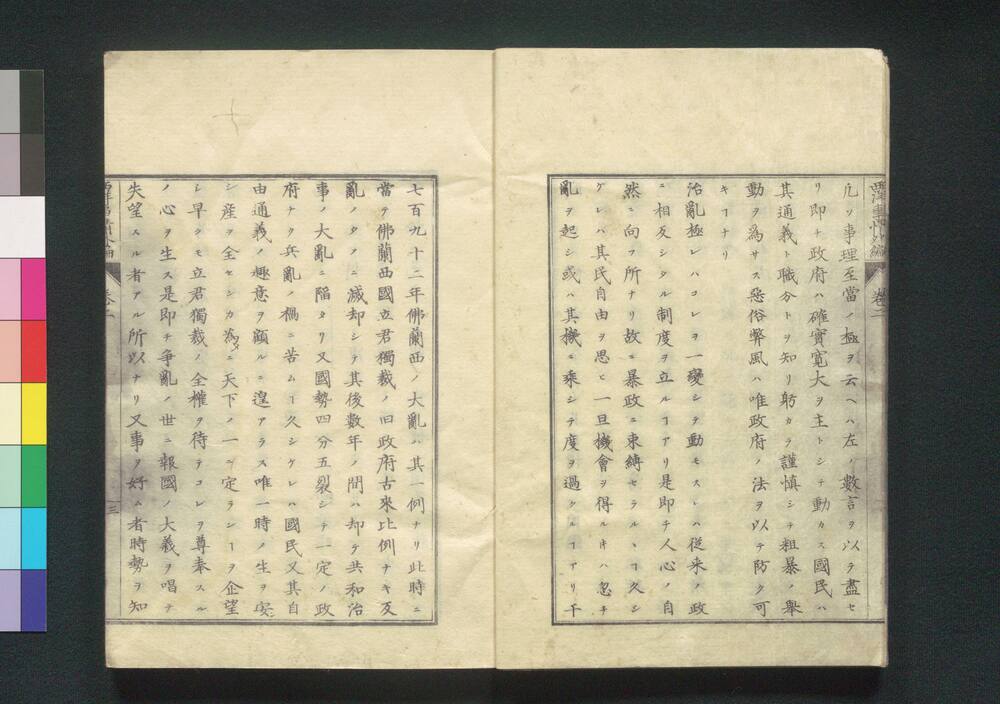 西洋事情外編
卷二
凡ソ事理至當ノ極ヲ云ヘハ左ノ數言ヲ以ラ盡セ
リ即チ政府ハ確實寛大ヲ主トシテ動カス國民ハ
其通義ト職分トヲ知リ躬カラ謹愼シテ粗暴ノ舉
動ヲ爲サス惡俗弊風ハ唯政府ノ法ヲ以テ防ク可
キヿナリ
治亂極レハコレヲ一變シテ動モスレハ従来ノ政
ニ相反シタル制度ヲ立ルヿアリ是即チ人心ノ自
然ニ向フ所ナリ故ニ暴政ニ束縛セラルヽヿ久シ
ケレハ其民自由ヲ思ヒ一旦機會ヲ得ルキハ忽チ
亂ヲ起シ或ハ其機ニ乘シテ度ヲ過クルヿアリ千
七百九十二年佛蘭西ノ大亂ハ其一例ナリ此時ニ
當テ佛蘭西國立君獨裁ノ旧政府古來比例ナキ反
亂ノタメニ滅却シテ其後数年ノ間ハ却テ共和治
事ノ大亂ニ陷タリ又國勢四分五裂シテ一定ノ政
府ナク兵亂ノ禍ニ苦ムヿ久シケレハ國民又其自
由通義ノ趣意ヲ顧ルニ遑アラス唯一時ノ生ヲ安
シ産ヲ全セシカ為メニ天下ノ一ニ定ランヿヲ企望
シ早クモ立君獨裁ノ全權ヲ待テコレヲ尊奉スル
ノ心ヲ生ス是即チ争亂ノ世ニ報國ノ大義ヲ唱テ
失望スル者アル所以ナリ又事ヲ好ム者時勢ヲ知
西洋事情外編
卷二
三